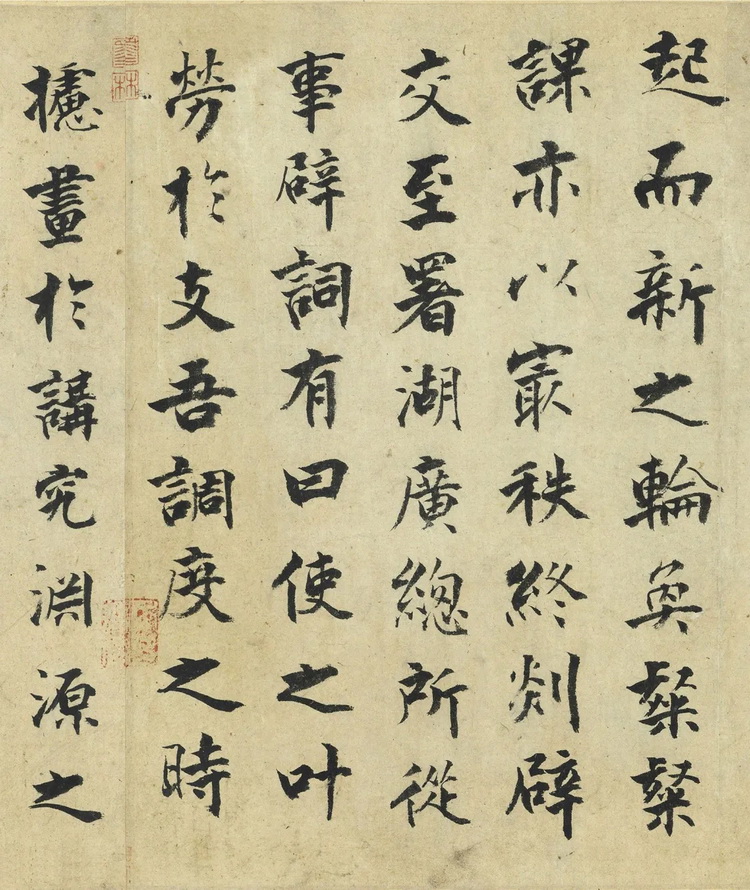 起而新之輪奐粲粲
課亦以最秩終剡辟
交至署湖廣總所從
事辟詞有曰使之叶
勞於支吾調度之時
攄畫於講究淵源之